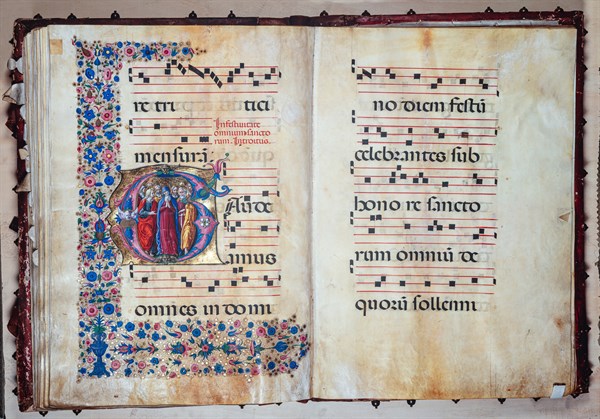 re tri tici
In festivitate
omnium sancto
rum. Introitus.
mensurā
Aude
amus
omnes in domi
no diem festū
celebrantes sub
hono re sancto
rum omniū de
quorū sollemni